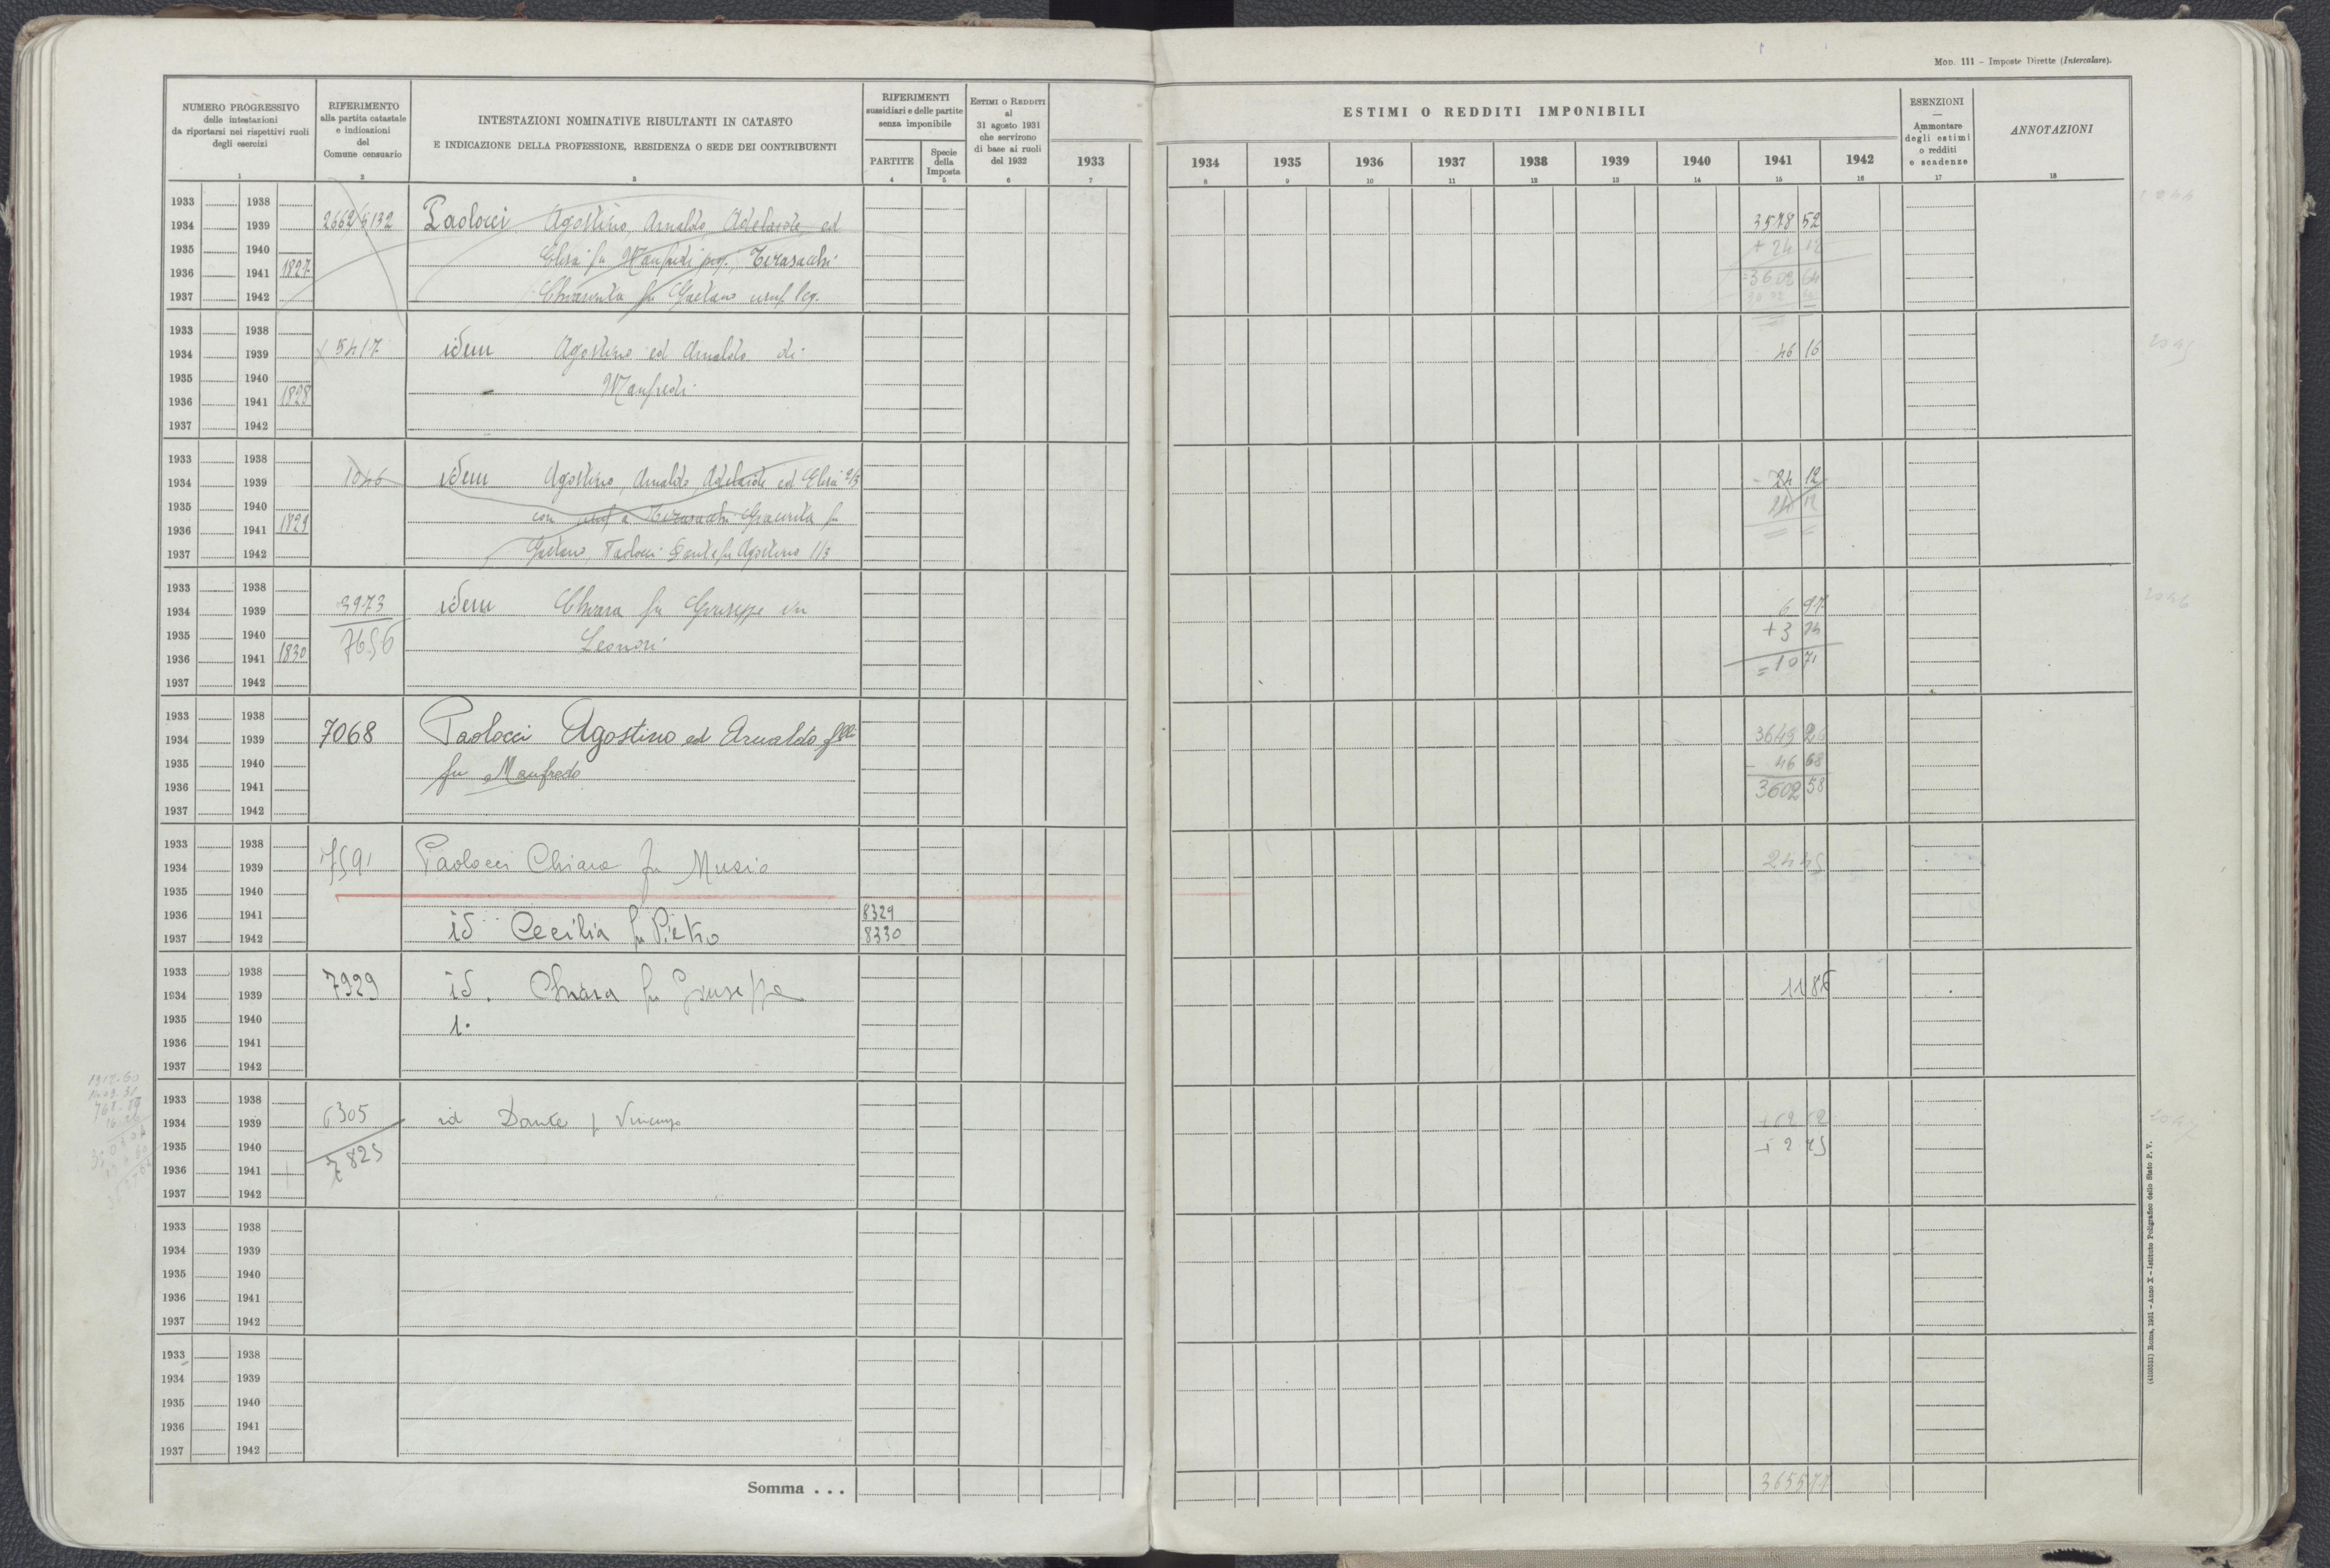 MOD. 111 – Imposte Dirette (Intercalare).
NUMERO PROGRESSIVO
delle intestazioni
da riportarsi nei rispettivi ruoli
degli esercizi
1
RIFERIMENTO
alla partita catastale
e indicazioni
del
Comune censuario
2
INTESTAZIONI NOMINATIVE RISULTANTI IN CATASTO
E INDICAZIONE DELLA PROFESSIONE, RESIDENZA O SEDE DEI CONTRIBUENTI
3
RIFERIMENTI
sussidiari e delle partite
senza imponibile
PARTITE
4
Specie
della
Imposta
5
ESTIMI O REDDITI
al
31 agosto 1931
che servirono
di base ai ruoli
del 1932
6
1933
7
ESTIMI O REDDITI IMPONIBILI
1934 1935 1936 1937 1938 1939 1940 1941 1942
8 9 10 11 12 13 14 15 16
ESENZIONI
—
Ammontare
degli estimi
o redditi
e scadenze
17
ANNOTAZIONI
18
1933 1938
1934 1939 2662 5132 Paolocci Agostino, Arnaldo, Adelaide, ed 3578 52
1935 1940 Elisa fu Manfredi + 24 12
1936 1941 1827 = 3602 64
1937 1942 fu Gaetano usuf. leg.
1933 1938
1934 1939 5417 idem Agostino ed Arnaldo di 46 16
1935 1940 Manfredi
1936 1941 1828
1937 1942
1933 1938
1934 1939 1046 idem Agostino, Arnaldo, Adelaide ed Elisa 2/3 24 12
1935 1940 con usuf a fu 24 12
1936 1941 1829
1937 1942 Gaetano, Paolocci fu Agostino 1/3
1933 1938
1934 1939 3973 idem Chiara fu Giuseppe in 6 97
1935 1940 7656 Leonori + 3 74
1936 1941 1830 = 10 71
1937 1942
1933 1938
1934 1939 7068 Paolocci Agostino ed Arnaldo flli 3649 26
1935 1940 fu Manfredo - 46 68
1936 1941 3602 58
1937 1942
1933 1938
1934 1939 7591 Paolocci Chiara fu Musio 24 45
1935 1940
1936 1941 8329
1937 1942 id Cecilia fu Pietro 8330
1933 1938
1934 1939 7929 id. Chiara fu Giuseppe 11 86
1935 1940 1.
1936 1941
1937 1942
1933 1938
1934 1939 6305 id Dante f Vincenzo
1935 1940 7825 + 2 75
1936 1941
1937 1942
1933 1938
1934 1939
1935 1940
1936 1941
1937 1942
1933 1938
1934 1939
1935 1940
1936 1941
1937 1942
Somma . . .
2045
2046
(4103531) Roma, 1931 – Anno X – Istituto Poligrafico dello Stato P. V.